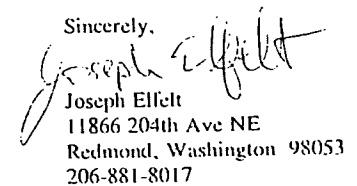 Sincerely,
Joseph Elfelt
Joseph Elfelt
11866 204th Ave NE
Redmond, Washington 98053
206-881-8017